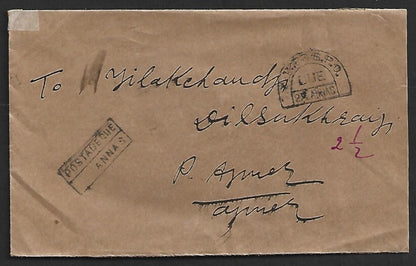 To Tilakchandji
Dilsukhraiji
2 1/2
P. Ajmer
Ajmer
POSTAGE DUE
ANNAS
DUE